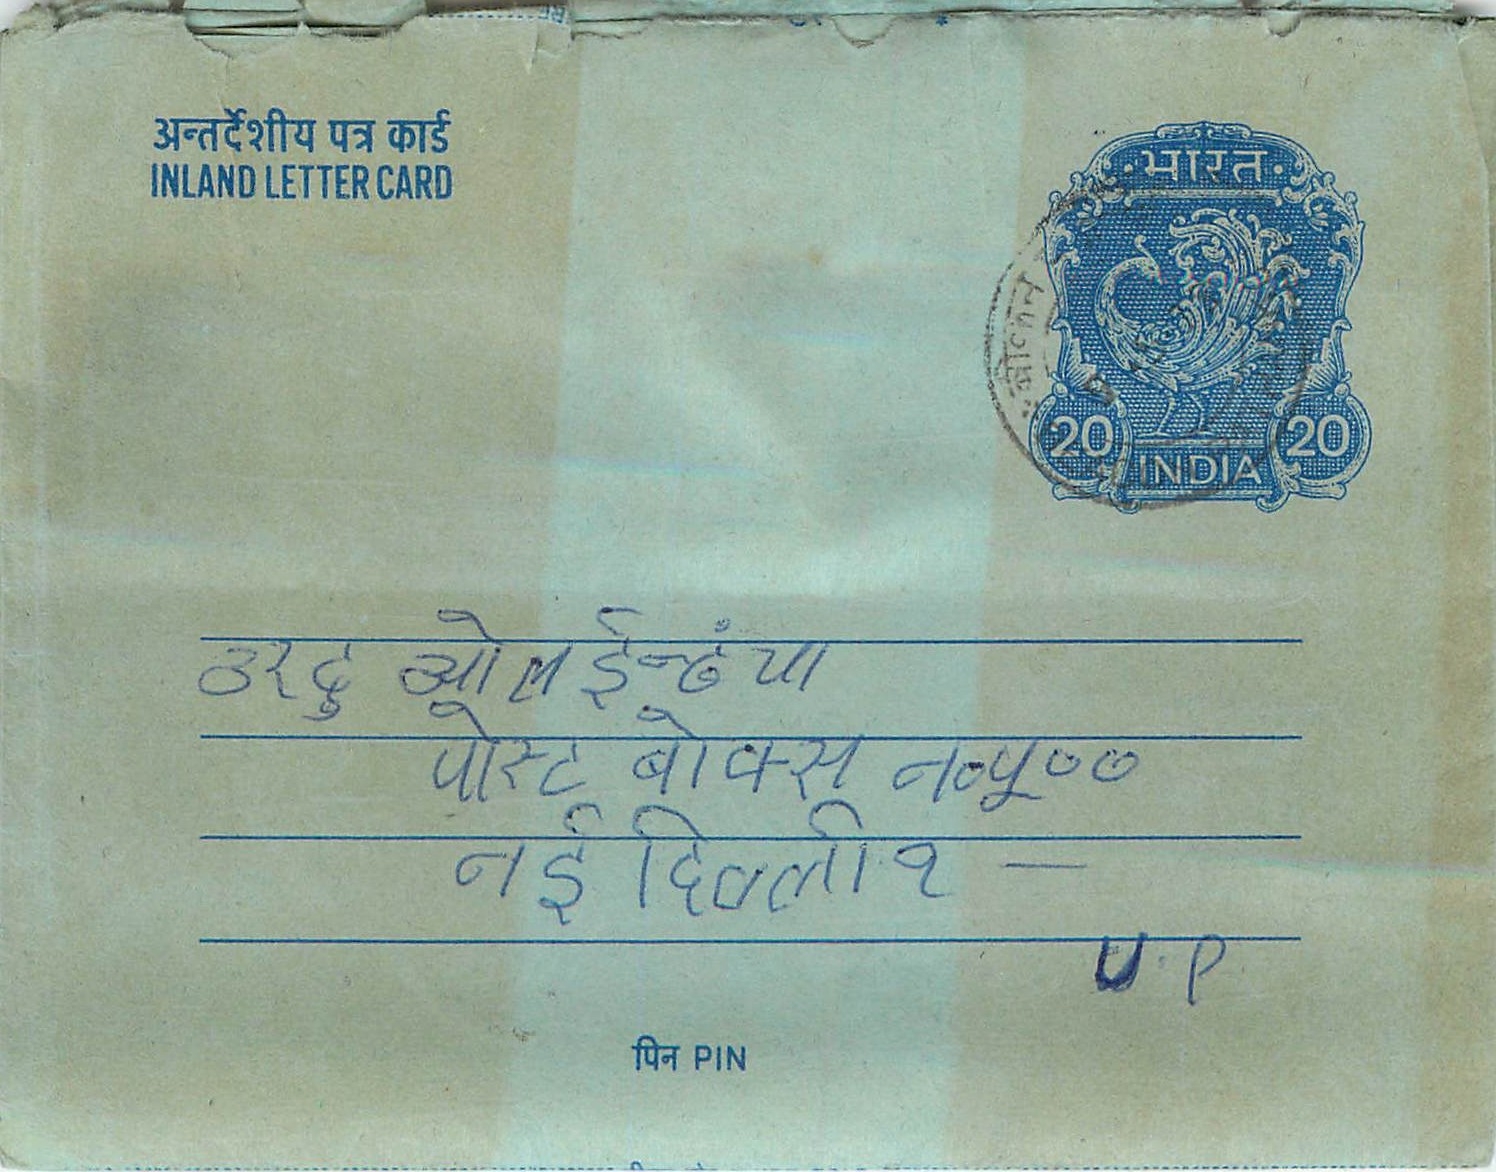 अन्तर्देशीय पत्र कार्ड
INLAND LETTER CARD
भारत
20 20
INDIA
उरदु ओल ईन्डंया
पोस्ट बोक्स न० ५००
नई दिल्ली १ —
U.P
पिन PIN